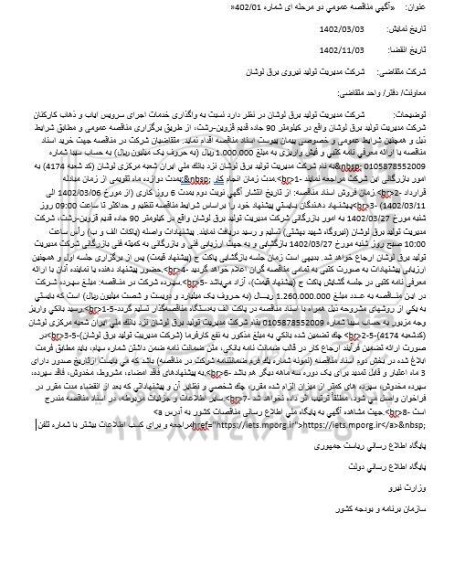 عنوان: «آگهي مناقصه عمومي دو مرحله ای شماره 402/01»
تاریخ نمایش: 1402/03/03
تاریخ انقضا: 1402/11/03
شرکت متقاضی: شرکت مدیریت تولید نیروی برق لوشان
معاونت/ دفتر/ واحد متقاضی:
توضیحات: شرکت مدیریت تولید برق لوشان در نظر دارد نسبت به واگذاری خدمات اجرای سرویس ایاب و ذهاب کارکنان
شرکت مدیریت تولید برق لوشان واقع در کیلومتر 90 جاده قدیم قزوین-رشت، از طریق برگزاری مناقصه عمومی و مطابق شرایط
ذیل و همچنین شرایط عمومی و خصوصی پیمان پیوست اسناد مناقصه اقدام نماید. متقاضیان شرکت در مناقصه جهت خرید اسناد
مناقصه با ارائه معرفی نامه کتبی و فیش واریزی به مبلغ 1.000.000 ریال (به حروف یک میلیون ریال) به حساب سیبا شماره
0105878352009 &nbsp;به نام شرکت مدیریت تولید برق لوشان نزد بانک ملي ایران شعبه مرکزی لوشان (کد شعبه 4174) به
امور بازرگانی این شرکت مراجعه نمایند.<br>1-مدت زمان انجام کار &nbsp;:بمدت دوازده ماه تقویمی از زمان مبادله
قرارداد.<br>2-زمان فروش اسناد مناقصه: از تاریخ انتشار آگهی نوبت دوم بمدت 6 روز کاری (از مورخ 1402/03/06 الی
1402/03/11)<br>3-پیشنهاد دهندگان بایستی پیشنهاد خود را براساس شرایط مناقصه تنظیم و حداکثر تا ساعت 09:00 روز
شنبه مورخ 1402/03/27 به امور بازرگانی شرکت مدیریت تولید برق لوشان واقع در کیلومتر 90 جاده قدیم قزوین-رشت، شرکت
مدیریت تولید برق لوشان (نیروگاه شهید بهشتی) تسلیم و رسید دریافت نمایند. پیشنهادات واصله (پاکات الف و ب) رأس ساعت
10:00 صبح روز شنبه مورخ 1402/03/27 بازگشایی و به جهت ارزیابی فنی و بازرگانی به کمیته فنی بازرگانی شرکت مدیریت
تولید برق لوشان ارجاع خواهد شد. بدیهی است زمان جلسه بازگشایی پاکت ج (پیشنهاد قیمت) پس از برگزاری جلسه اول و همچنین
ارزیابی پیشنهادات به صورت کتبی به تمامی مناقصه گران اعلام خواهد گردید.<br>4-حضور پیشنهاد دهنده یا نماینده آنان با ارائه
معرفی نامه کتبی در جلسه گشایش پاکت ج (پیشنهاد قیمت)، آزاد می‌باشد.<br>5-سپرده شرکت در مناقصه: مبلغ سپرده شرکت
در این مناقصه به عدد مبلغ 1.260.000.000 ریال (به حروف یک میلیارد و دویست و شصت میلیون ریال) است که بایستي
به یکي از روشهای مشروحه ذیل همراه با اسناد مناقصه در پاکت الف به‌دستگاه مناقصه‌گذار تسلیم گردد.<br>5-1-رسید بانکی واریز
وجه مزبور به حساب سیبا شماره 0105878352009 بنام شرکت مدیریت تولید برق لوشان نزد بانک ملي ایران شعبه مرکزی لوشان
(کدشعبه 4174)<br>5-2-چک تضمین شده بانکی به مبلغ مذکور به نفع کارفرما (شرکت مدیریت تولید برق لوشان)<br>5-3-در
صورت ارائه تضمین فرآیند ارجاع کار در قالب ضمانت نامه بانکی، متن ضمانت نامه ضمن داشتن شماره سپام، باید مطابق فرمت
ابلاغ شده در بخش دوم اسناد مناقصه (نمونه شماره یک فروم‌ضمانتنامه شرکت در مناقصه) باشد که می بایست ازتاریخ صدور دارای
3 ماه اعتبار و قابل تمدید برای یک دوره سه ماهه دیگر هم باشد.<br>6-به پیشنهادهای فاقد امضاء، مشروط، مخدوش، فاقد سپرده،
سپرده مخدوش، سپرده های کمتر از میزان الزام شده مقرر، چک شخصی و نظایر آن و پیشنهاداتی که بعد از انقضاء مدت مقرر در
فراخوان واصل می شود، مطلقاً ترتیب اثر داده نخواهد شد.<br>7-سایر اطلاعات و جزئیات مربوطه، در اسناد مناقصه مندرج
است.<br>8-جهت مشاهده آگهي به پایگاه ملي اطلاع رسانی مناقصات کشور به آدرس <a
href="https://iets.mporg.ir">https://iets.mporg.ir</a>&nbsp;مراجعه و برای کسب اطلاعات بیشتر با شماره تلفن
پایگاه اطلاع رسانی ریاست جمهوری
پایگاه اطلاع رسانی دولت
وزارت نیرو
سازمان برنامه و بودجه کشور